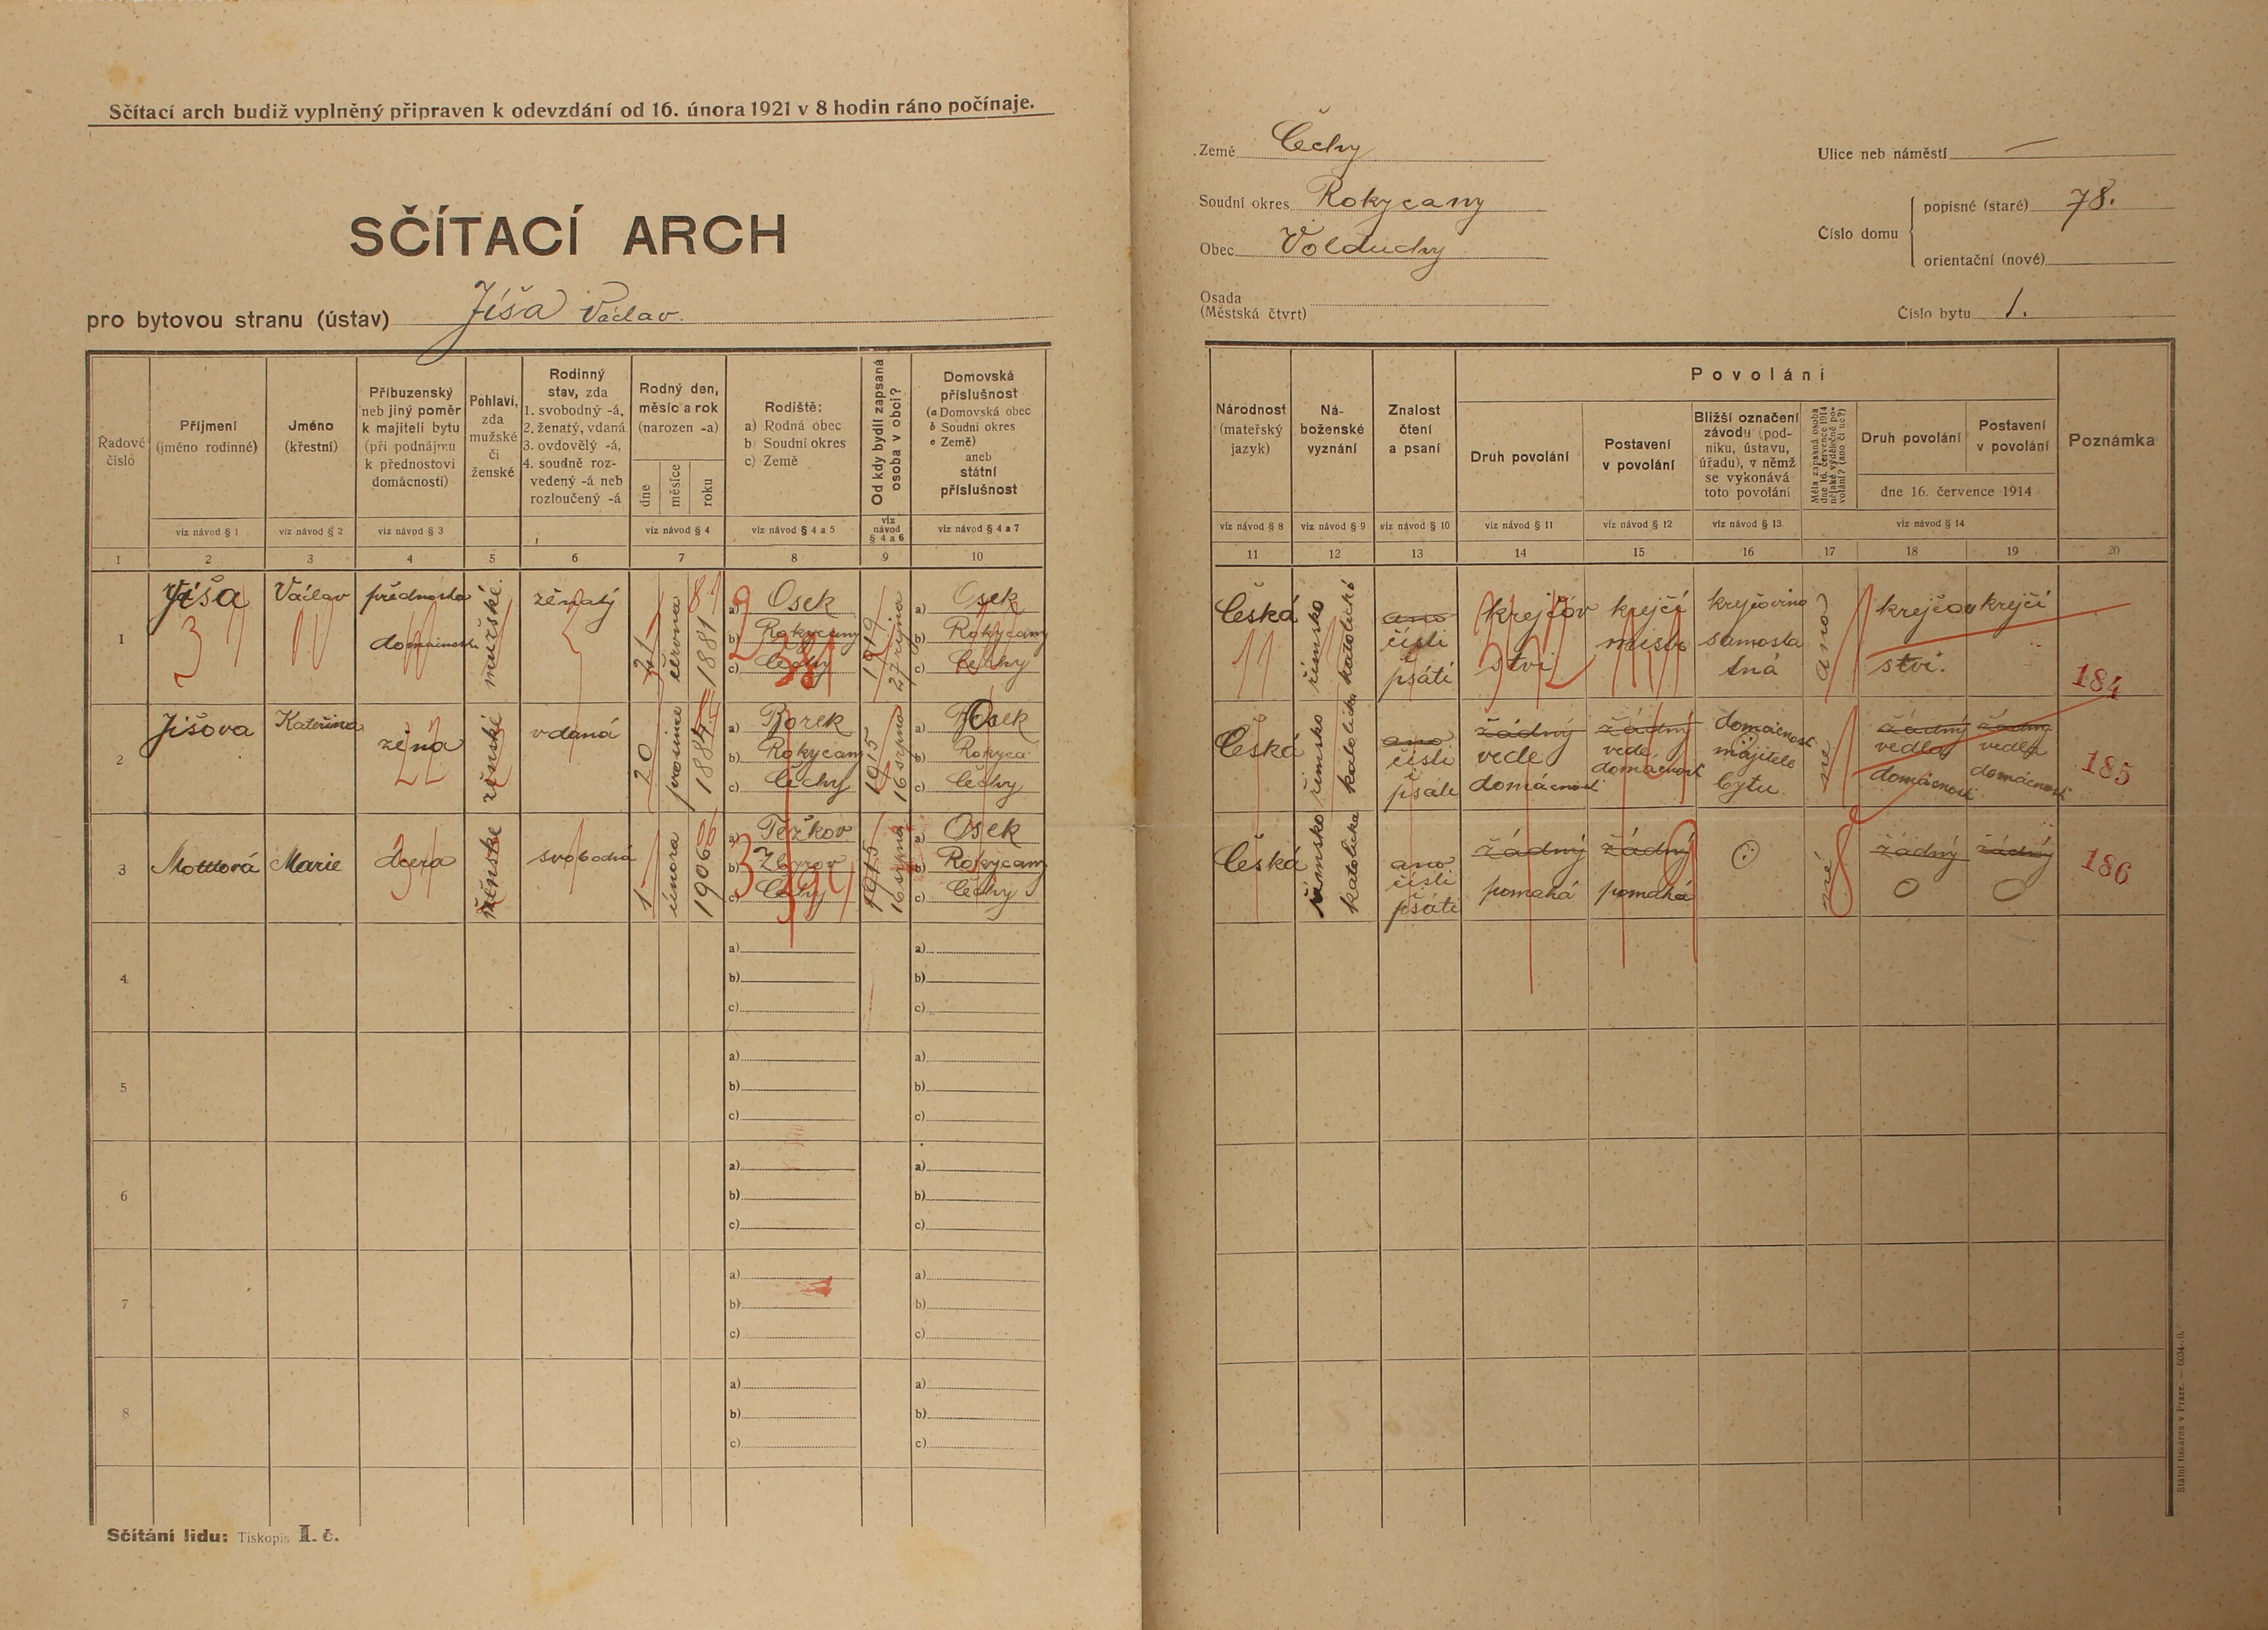 Sčítací arch budiž vyplněný připraven k odevzdání od 16. února 1921 v 8 hodin ráno počínaje.
SČÍTACÍ ARCH
pro bytovou stranu (ústav) Jíša Václav.
Země Čechy
Soudní okres Rokycany
Obec Volduchy
Osada
(Městská čtvrt)
Ulice neb náměstí —
Číslo domu
popisné (staré) 78.
orientační (nové)
Číslo bytu 1.
Řadové číslo
Příjmení (jméno rodinné)
Jméno (křestní)
Příbuzenský neb jiný poměr k majiteli bytu (při podnájmu k přednostovi domácnosti)
Pohlaví, zda mužské či ženské
Rodinný stav, zda 1. svobodný -á, 2. ženatý, vdaná 3. ovdovělý -á, 4. soudně rozvedený -á neb rozloučený -á
Rodný den, měsíc a rok (narozen -a)
dne měsíce roku
Rodiště: a) Rodná obec b) Soudní okres c) Země
Od kdy bydlí zapsaná osoba v obci?
Domovská příslušnost (a Domovská obec b Soudní okres c Země) aneb státní příslušnost
viz návod § 1 viz návod § 2 viz návod § 3 viz návod § 4 viz návod § 4 a 5 viz návod § 4 a 6 viz návod § 4 a 7
1 2 3 4 5 6 7 8 9 10
Národnost (mateřský jazyk)
Náboženské vyznání
Znalost čtení a psaní
Povolání
Druh povolání
Postavení v povolání
Bližší označení závodu (podniku, ústavu, úřadu), v němž se vykonává toto povolání
Měla zapsaná osoba dne 16. července 1914 nějaké výdělečné povolání? (ano či ne?)
Druh povolání
Postavení v povolání
dne 16. července 1914
Poznámka
viz návod § 8 viz návod § 9 viz návod § 10 viz návod § 11 viz návod § 12 viz návod § 13 viz návod § 14
11 12 13 14 15 16 17 18 19 20
1 Jíša Václav přednosta domácnosti mužské ženatý 21 června 1881
a) Osek
b) Rokycany
c) Čechy
1919 27 října
a) Osek
b) Rokycany
c) Čechy
Česká římsko katolické ano čísti psáti krejčovství krejčí mistr krejčovina samostatná ano krejčovství. krejčí 184
2 Jíšova Kateřina žena ženské vdaná 20 prosince
a) Borek
b) Rokycany
c) Čechy
1915 16 srpna
a) Osek
b) Rokyca
c) Čechy
Česká římsko katolická ano čísti psáti žádný vede domácnost žádný vede domácnost domácnost majitele bytu. ne žádný vedla domácnost žádný vedla domácnost 185
3 Mottlová Marie dcera ženské svobodná 1 února 1906
a) Těžkov
b) Zbirov
c) Čechy
1915 16 srpna
a) Osek
b) Rokycany
c) Čechy
Česká římsko katolická ano čísti psáti žádný pomahá žádný pomahá né žádný O žádný O 186
4 a) b) c) a) b) c)
5 a) b) c) a) b) c)
6 a) b) c) a) b) c)
7 a) b) c) a) b) c)
8 a) b) c) a) b) c)
Sčítání lidu: Tiskopis I. č.
Státní tiskárna v Praze.